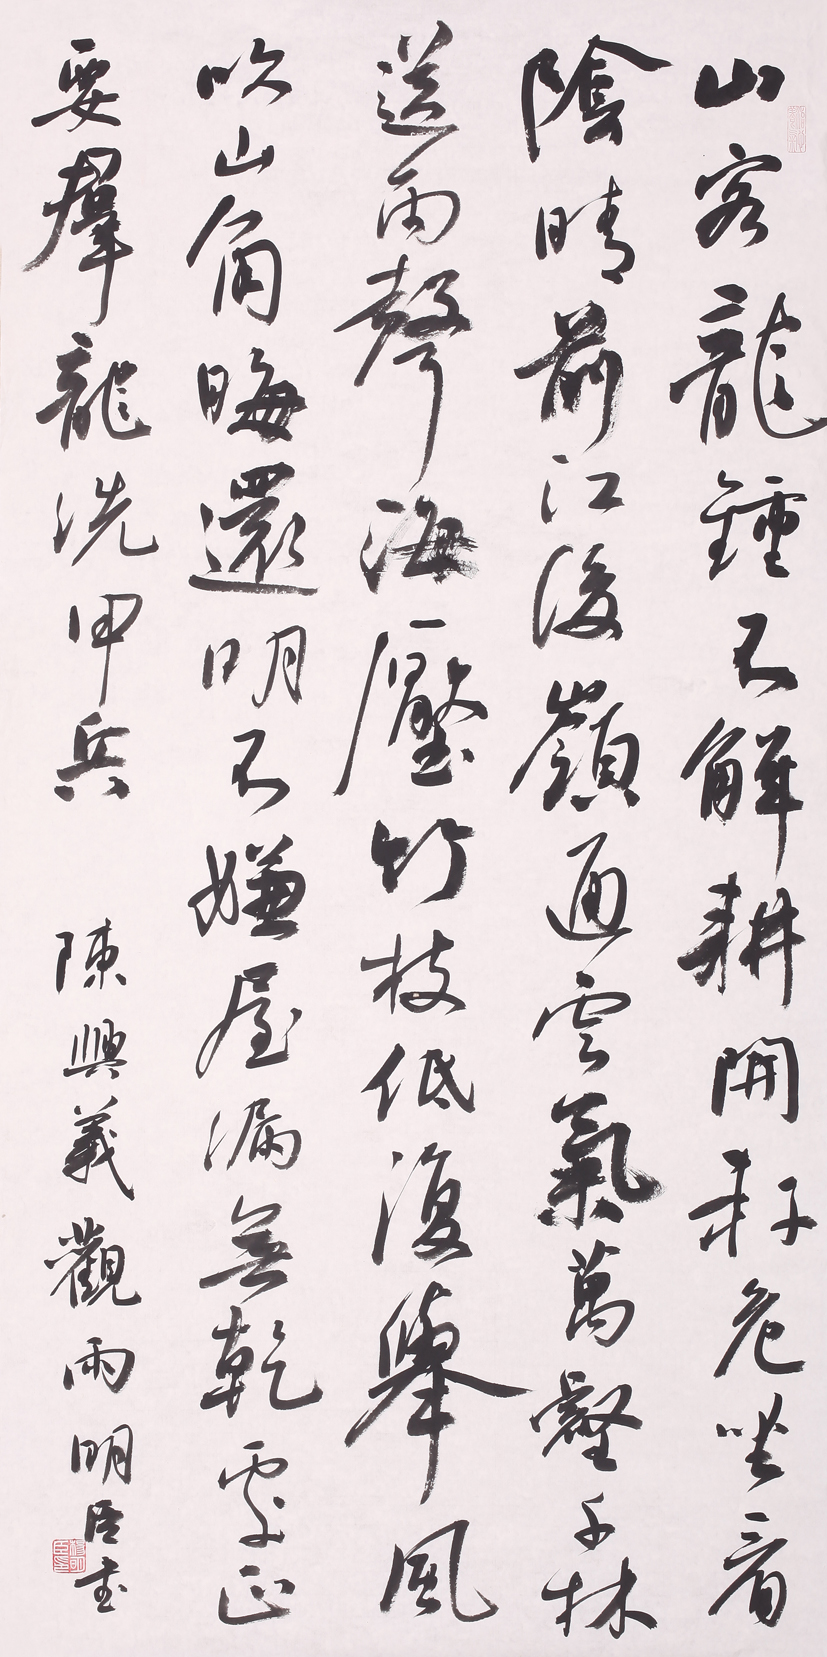 山客龍鍾不解耕開軒危坐看
陰晴前江後嶺通雲氣萬壑千林
送雨聲海壓竹枝低復舉風
吹山角晦還明不嫌屋漏無乾處正
要羣龍洗甲兵 陳與義觀雨明臣書